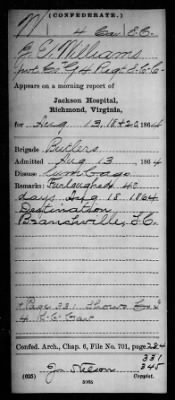 (CONFEDERATE.)
W 4 Cav S.C.
E. T. Williams
Pvt Co G 4 Reg. S.C.C
Appears on a morning report of
Jackson Hospital,
Richmond, Virginia,
for Aug 13, 18 & 20, 1864
Brigade Butlers
Admitted Aug 13, 1864
Disease Lumbago
Remarks: Furloughed 40
days Aug 18 1864
Destination
Branchville, S.C.
Page 331 Shows Co
4 S.C. Cav
Confed. Arch., Chap. 6, File No. 701, page 224
331
345
(635)
Copyist.